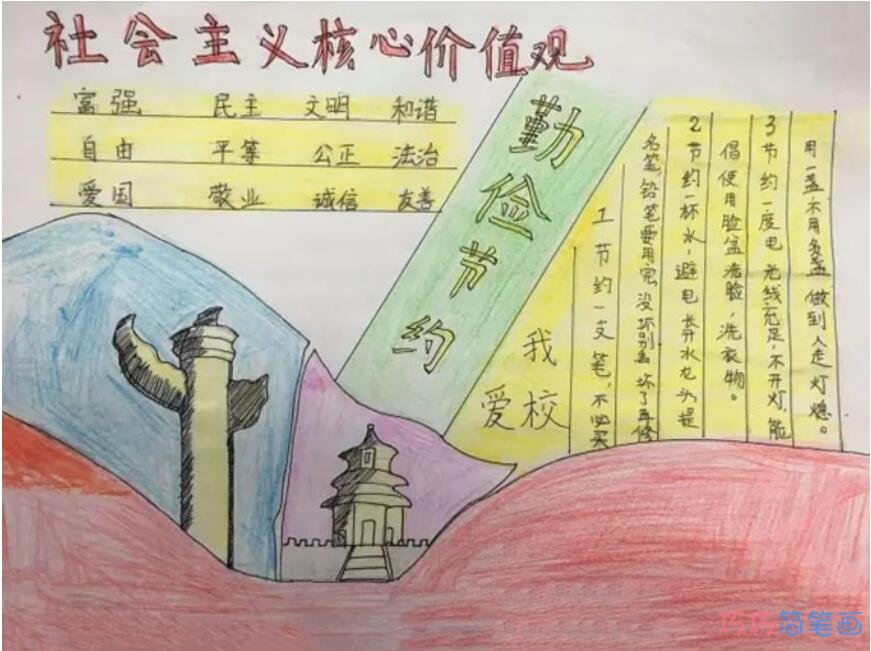 社会主义核心价值观
富强 民主 文明 和谐
自由 平等 公正 法治
爱国 敬业 诚信 友善
勤俭节约
我
爱校
1 节约一支笔,不必买
名笔,铅笔要用完,没坏别丢坏了再修
2 节约一杯水,避长开水龙头提
倡使用脸盆洗脸,洗衣物。
3 节约一度电 光线充足,不开灯,能
用一盏不用多盏 做到人走灯熄。
简笔画